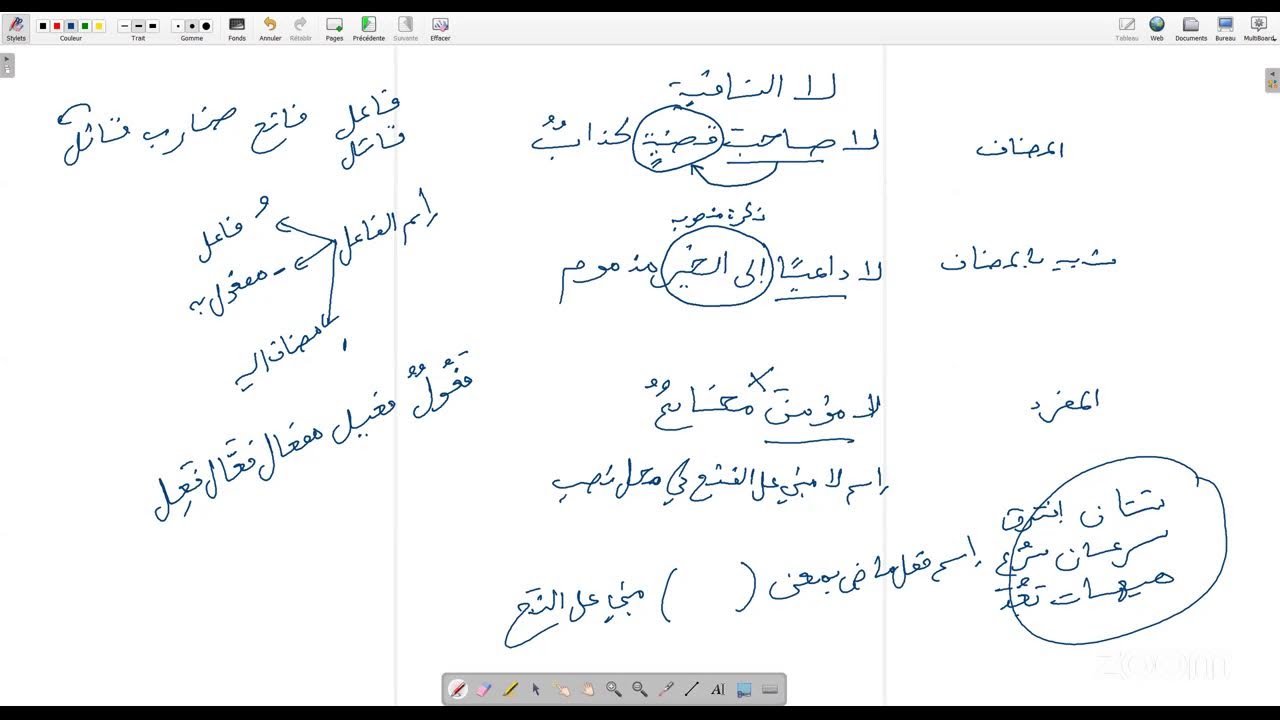 Stylets Couleur Trait Gomme Fonds Annuler Rétablir Pages Précédente Suivante Effacer Tableau Web Documents Bureau MultiBoard
لا النافية
المضاف
لا صاحبَ قضيةٍ كذابٌ
نكرة منصوب
شبيه بالمضاف
لا داعيًا إلى الخير مذموم
المفرد
لا مؤمنَ مخادعٌ
اسم لا مبني على الفتح في محل نصب
شتان افترق
سرعان سَرُع
هيهات بَعُدَ
اسم فعل ماض بمعنى ( ) مبني على الفتح
فاعل فاتح ضارب قاتل
قاتل
اسم الفاعل
فاعل
مفعول به
مضاف إليه
فَعُولٌ فعيل مفعال فعّال فَعِل
zoom
AI